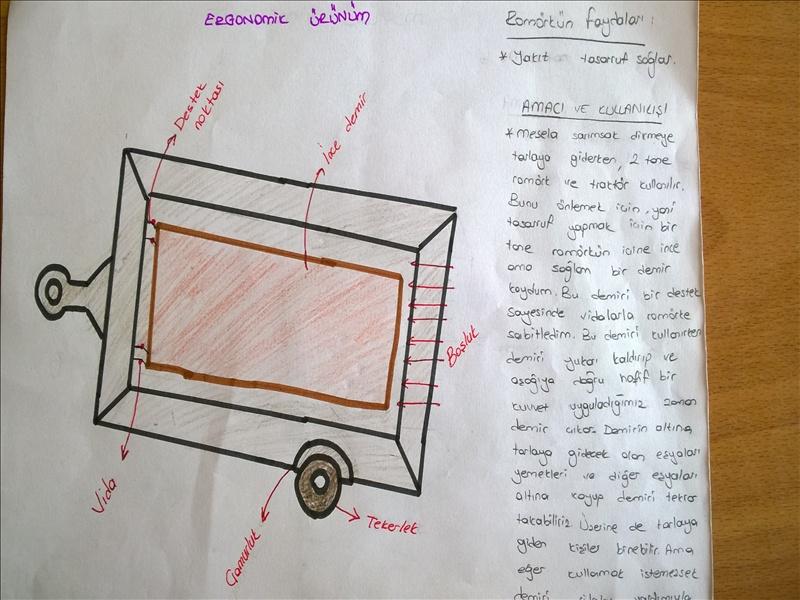 ERGONOMİK ÜRÜNÜM
Destek
noktası
İnce demir
Boşluk
Vida
Çamurluk
Tekerlek
Romörkün faydaları:
* Yakıt tasarruf sağlar.
AMACI VE KULLANILIŞI
* Mesela sarımsak dikmeye
tarlaya giderken, 2 tane
romörk ve traktör kullanılır.
Bunu önlemek için, yani
tasarruf yapmak için bir
tane romörkün içine ince
ama sağlam bir demir
koydum. Bu demiri bir destek
sayesinde vidalarla romörke
sabitledim. Bu demiri kullanırken
demiri yukarı kaldırıp ve
aşağıya doğru hafif bir
kuvvet uyguladığımız zaman
demir çıkar. Demirin altına
tarlaya gidecek olan eşyaları
yemekleri ve diğer eşyaları
altına koyup demiri tekrar
takabiliriz. Üzerine de tarlaya
giden kişiler binebilir. Ama
eğer kullanmak istemezsek
demiri yardımıyla